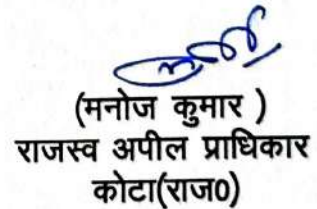 (मनोज कुमार )
राजस्व अपील प्राधिकार
कोटा(राज0)